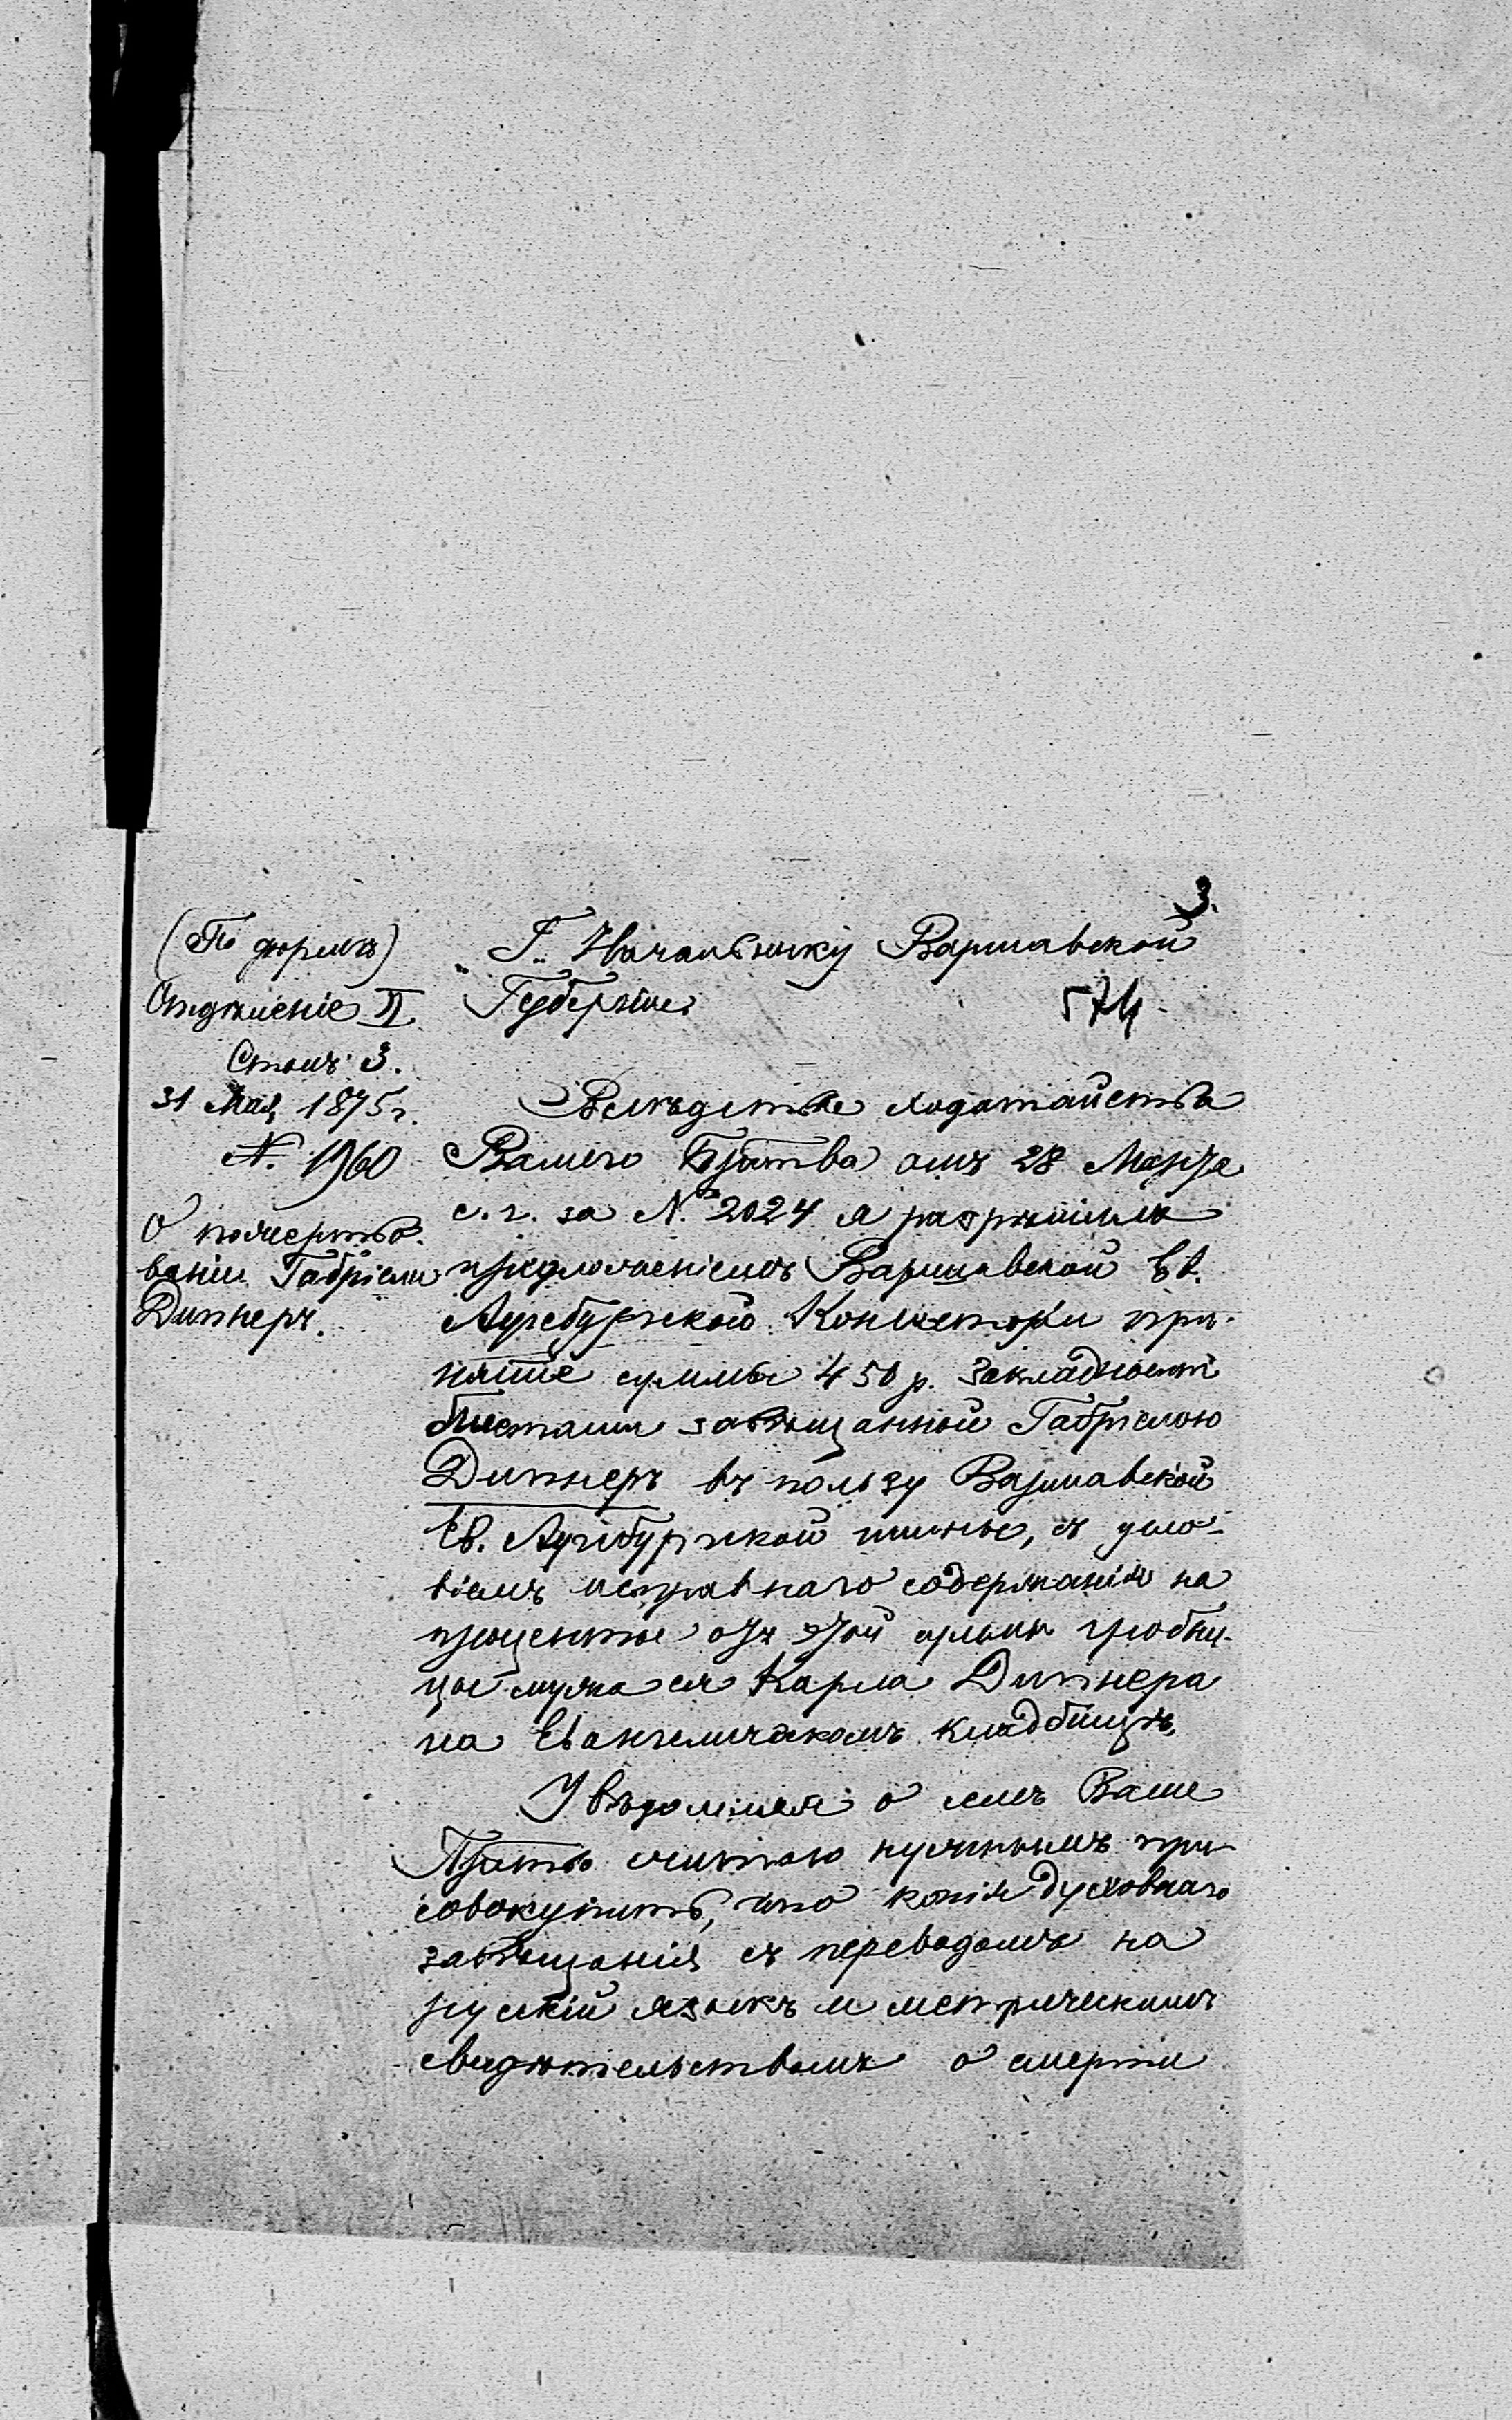 3.
(По формѣ)
Отдѣленіе II
Столъ 3.
31 Мая 1875 г.
№. 1960
О пожертво-
ваніи Габріели
Дитнеръ.
Г. Начальнику Варшавской
Губерніи
574
Вслѣдствіе ходатайства
Вашего Пр-ства отъ 28 Марта
с. г. за №. 2024 я разрѣшилъ
предложеніемъ Варшавской Ев.
Аугсбургской Консисторіи при-
нятіе суммы 450 р. закладными
листами завѣщанной Габріелою
Дитнеръ въ пользу Варшавской
Ев. Аугсбургской гмины, съ усло-
віемъ исправнаго содержанія на
проценты отъ этой суммы гробни-
цы мужа ея Карла Дитнера
на Евангелическомъ кладбищѣ.
Увѣдомляя о семъ Ваше
Пр-ство считаю нужнымъ при-
совокупить, что копія духовнаго
завѣщанія съ переводомъ на
русскій языкъ и метрическимъ
свидѣтельствомъ о смерти